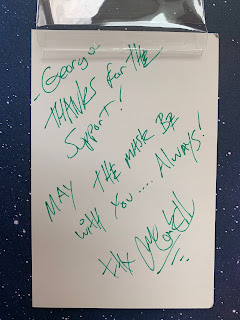 -George-
THANKS for THE
Support!
MAY THE MASK BE
with You..... Always!